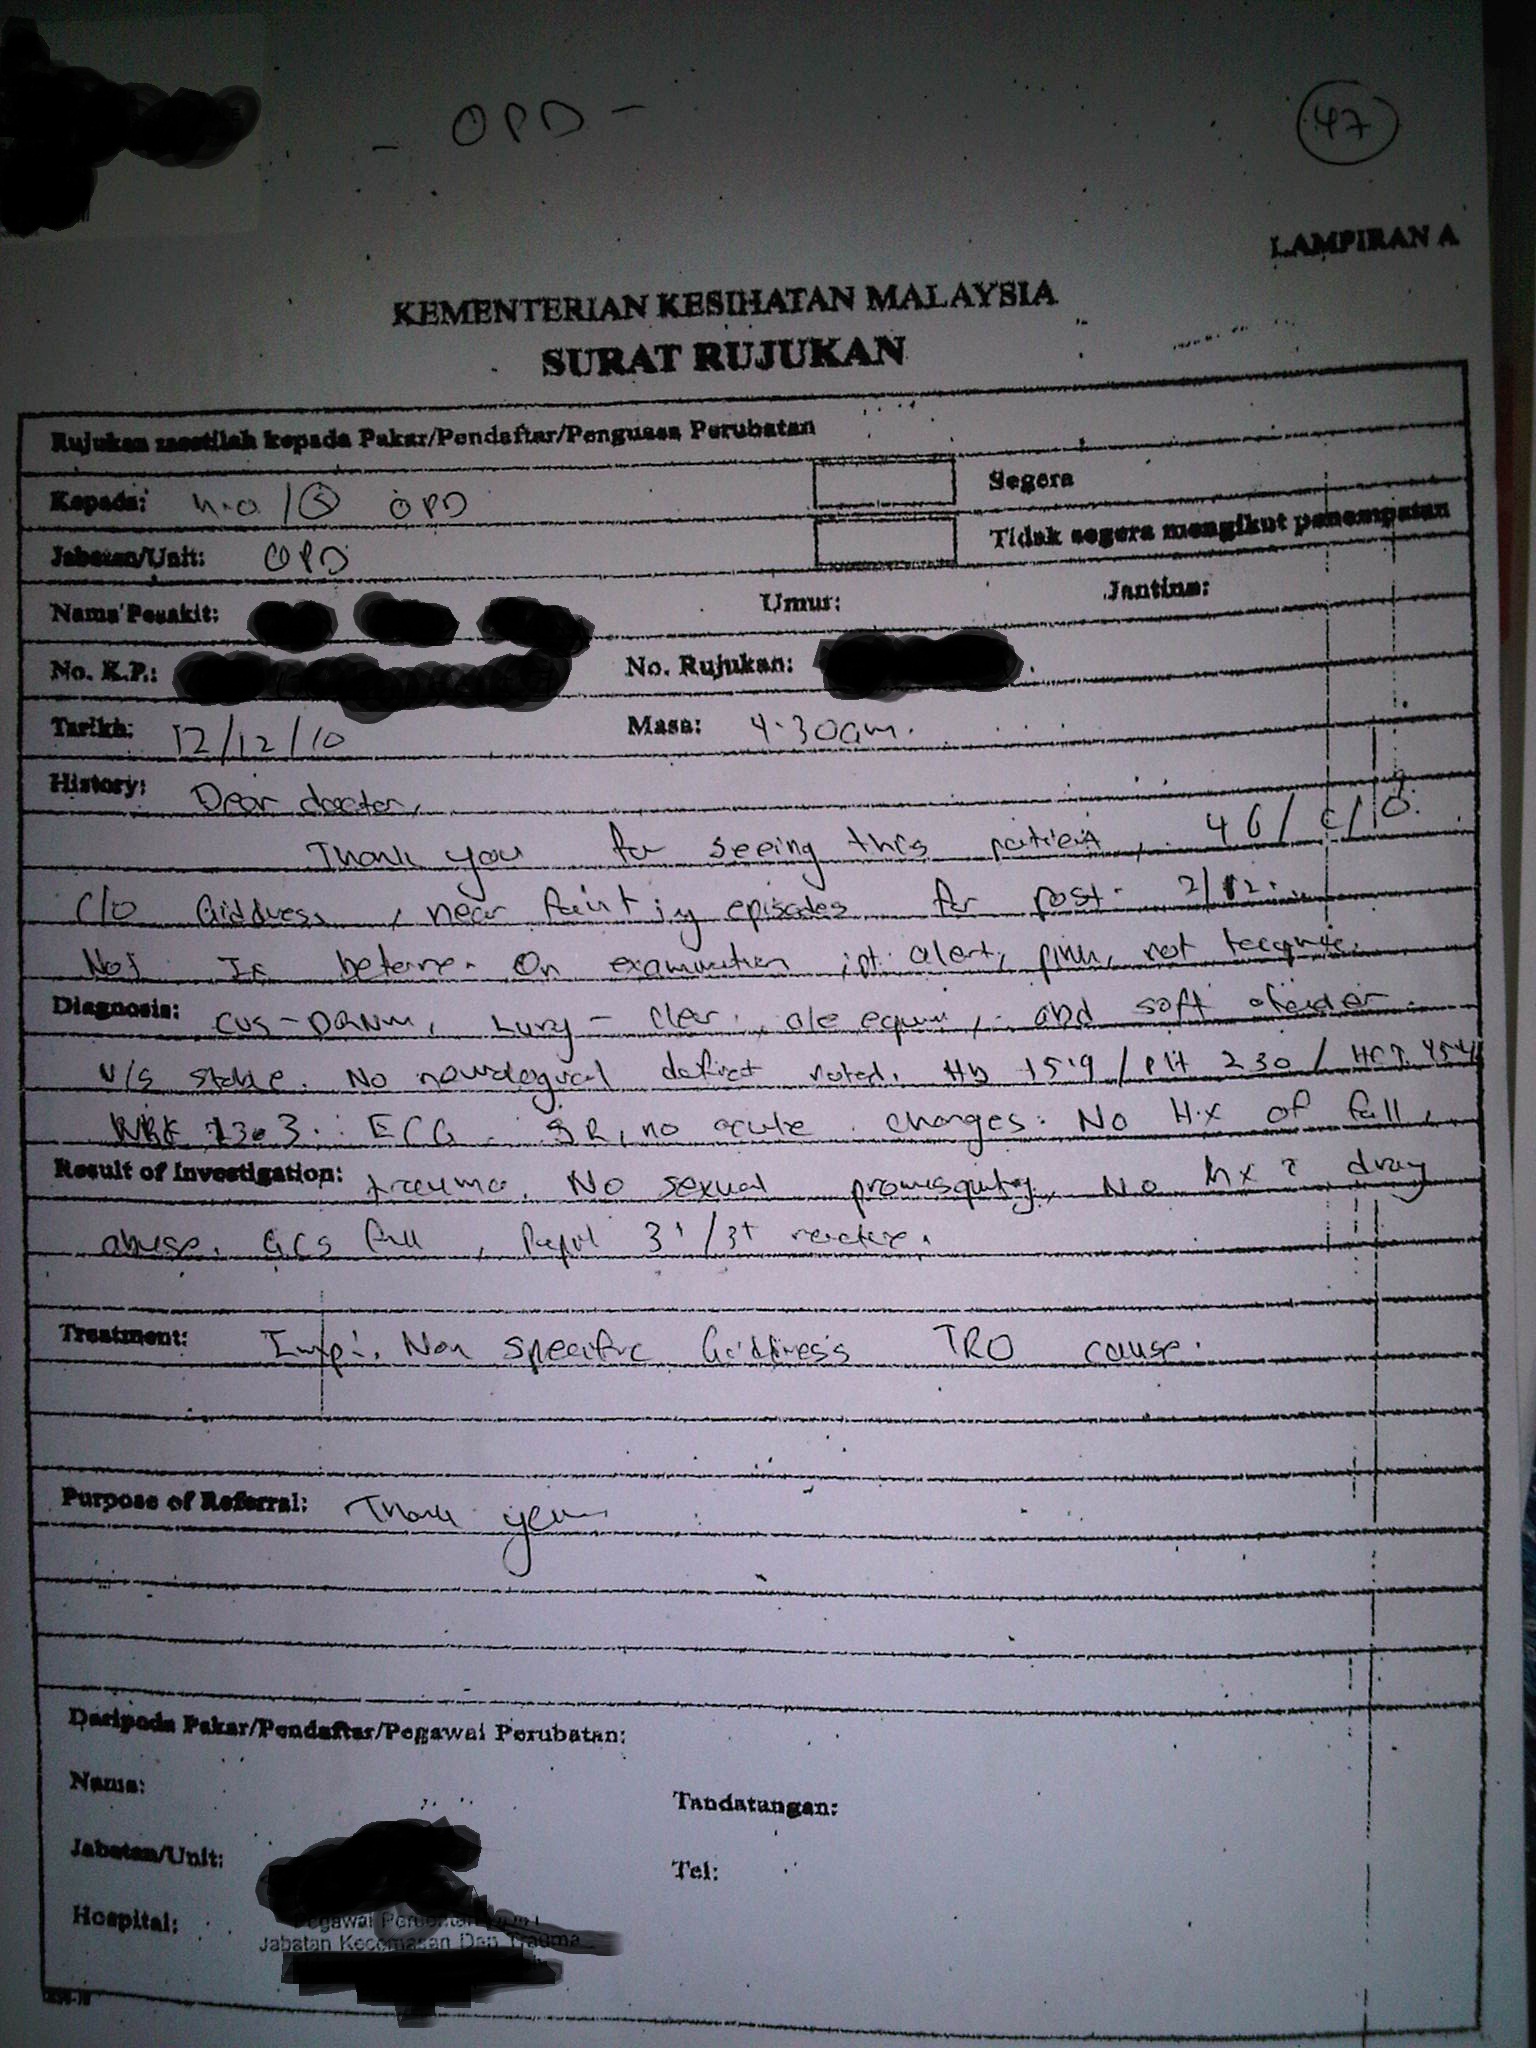 - OPD -
47
LAMPIRAN A
KEMENTERIAN KESIHATAN MALAYSIA
SURAT RUJUKAN
Rujukan mestilah kepada Pakar/Pendaftar/Penguasa Perubatan
Kepada: M.O / S OPD Segera
Jabatan/Unit: OPD Tidak segera mengikut penempatan
Nama Pesakit: Umur: Jantina:
No. K.P.: No. Rujukan:
Tarikh: 12/12/10 Masa: 4.30am.
History: Dear doctor,
Thank you for seeing this patient, 46/C/
C/O Giddiness, near fainting episodes for past 2/12.
On examination, pt alert, pink, not
Diagnosis: CVS-DRNM, Lung - clear, a/e equal, abd soft
V/S stable. No neurological deficit noted. Hb 15.9 / Plt 230 / HCT 45.4
13.3. ECG - SR, no acute changes. No Hx of fall,
Result of Investigation: trauma. No sexual promisquity, No hx drug
abuse. GCS full, Pupil 3+/3+ reactive.
Treatment: Imp: Non specific Giddiness TRO cause.
Purpose of Referral: Thank you
Daripada Pakar/Pendaftar/Pegawai Perubatan:
Nama: Tandatangan:
Jabatan/Unit: Tel:
Hospital: Pegawai Perubatan
Jabatan Kecemasan Dan Trauma